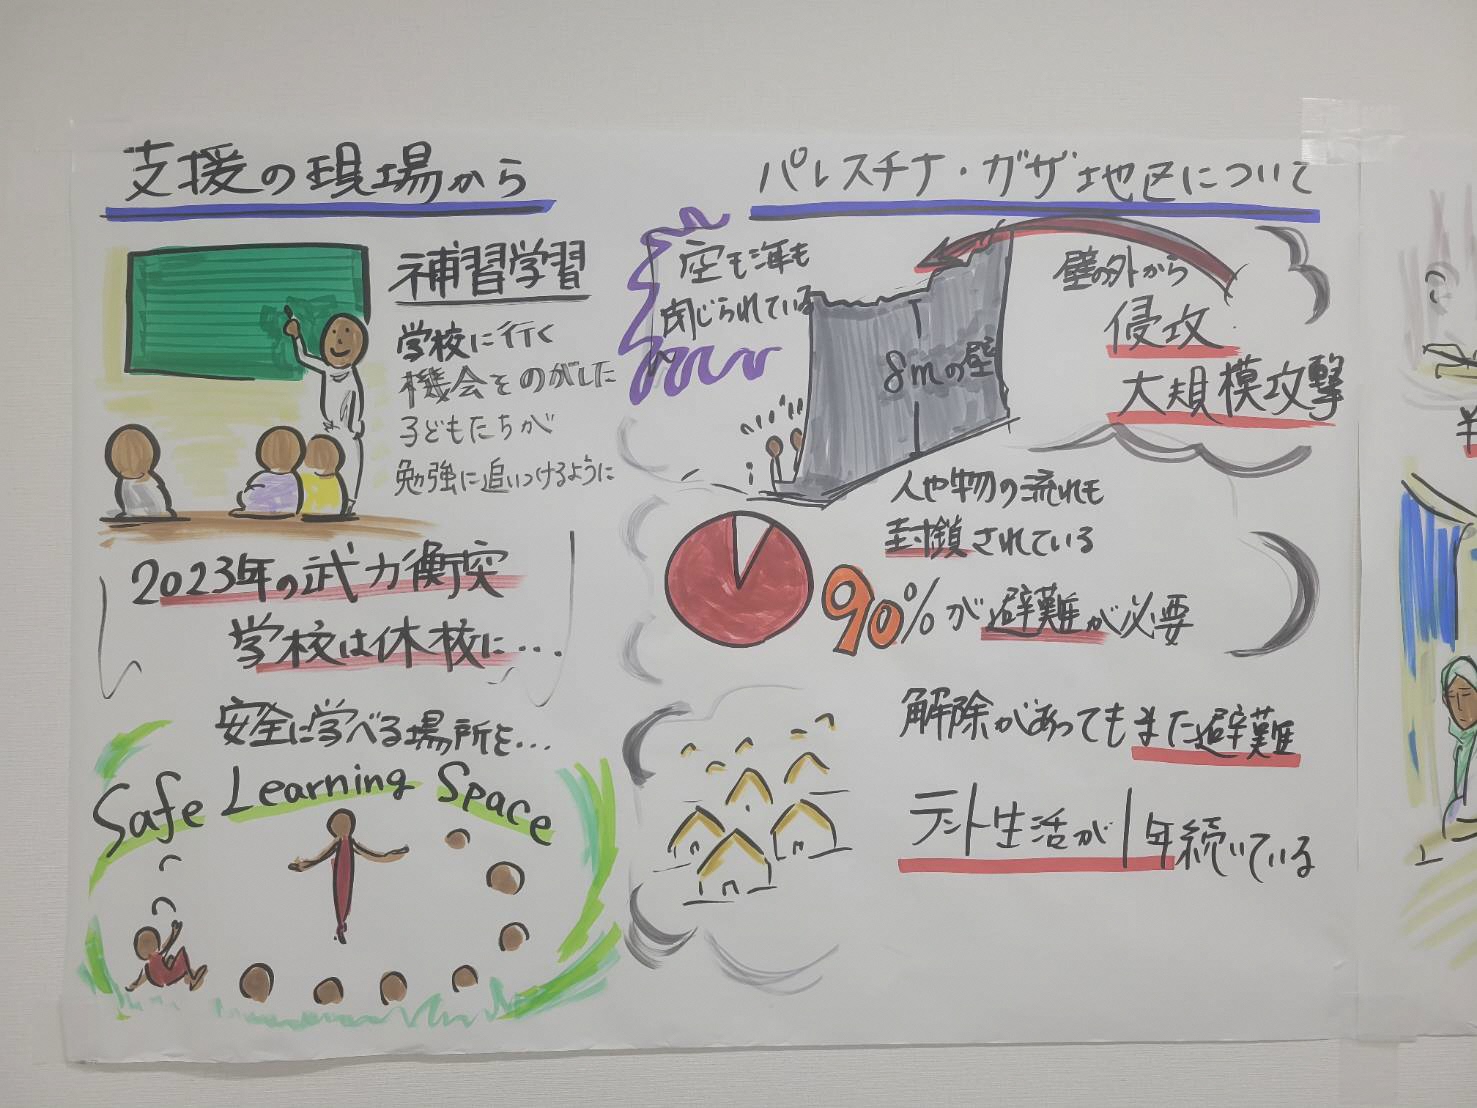 支援の現場から
補習学習
学校に行く
機会をのがした
子どもたちが
勉強に追いつけるように
2023年の武力衝突
学校は休校に…
安全に学べる場所を…
Safe Learning Space
パレスチナ・ガザ地区について
空も海も
閉じられている
8mの壁
壁の外から
侵攻
大規模攻撃
人や物の流れも
封鎖されている
90%が避難が必要
解除があってもまた避難
テント生活が1年続いている